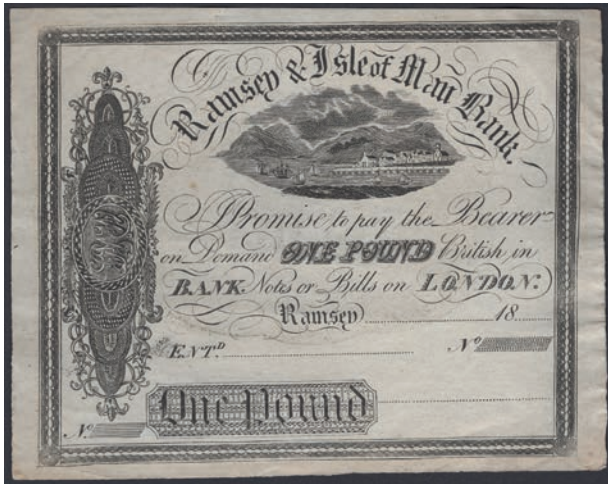 Ramsey & Isle of Man Bank.
I Promise to pay the Bearer
on Demand ONE POUND British in
BANK Notes or Bills on LONDON.
Ramsey 18
ENTD. No
One Pound
No